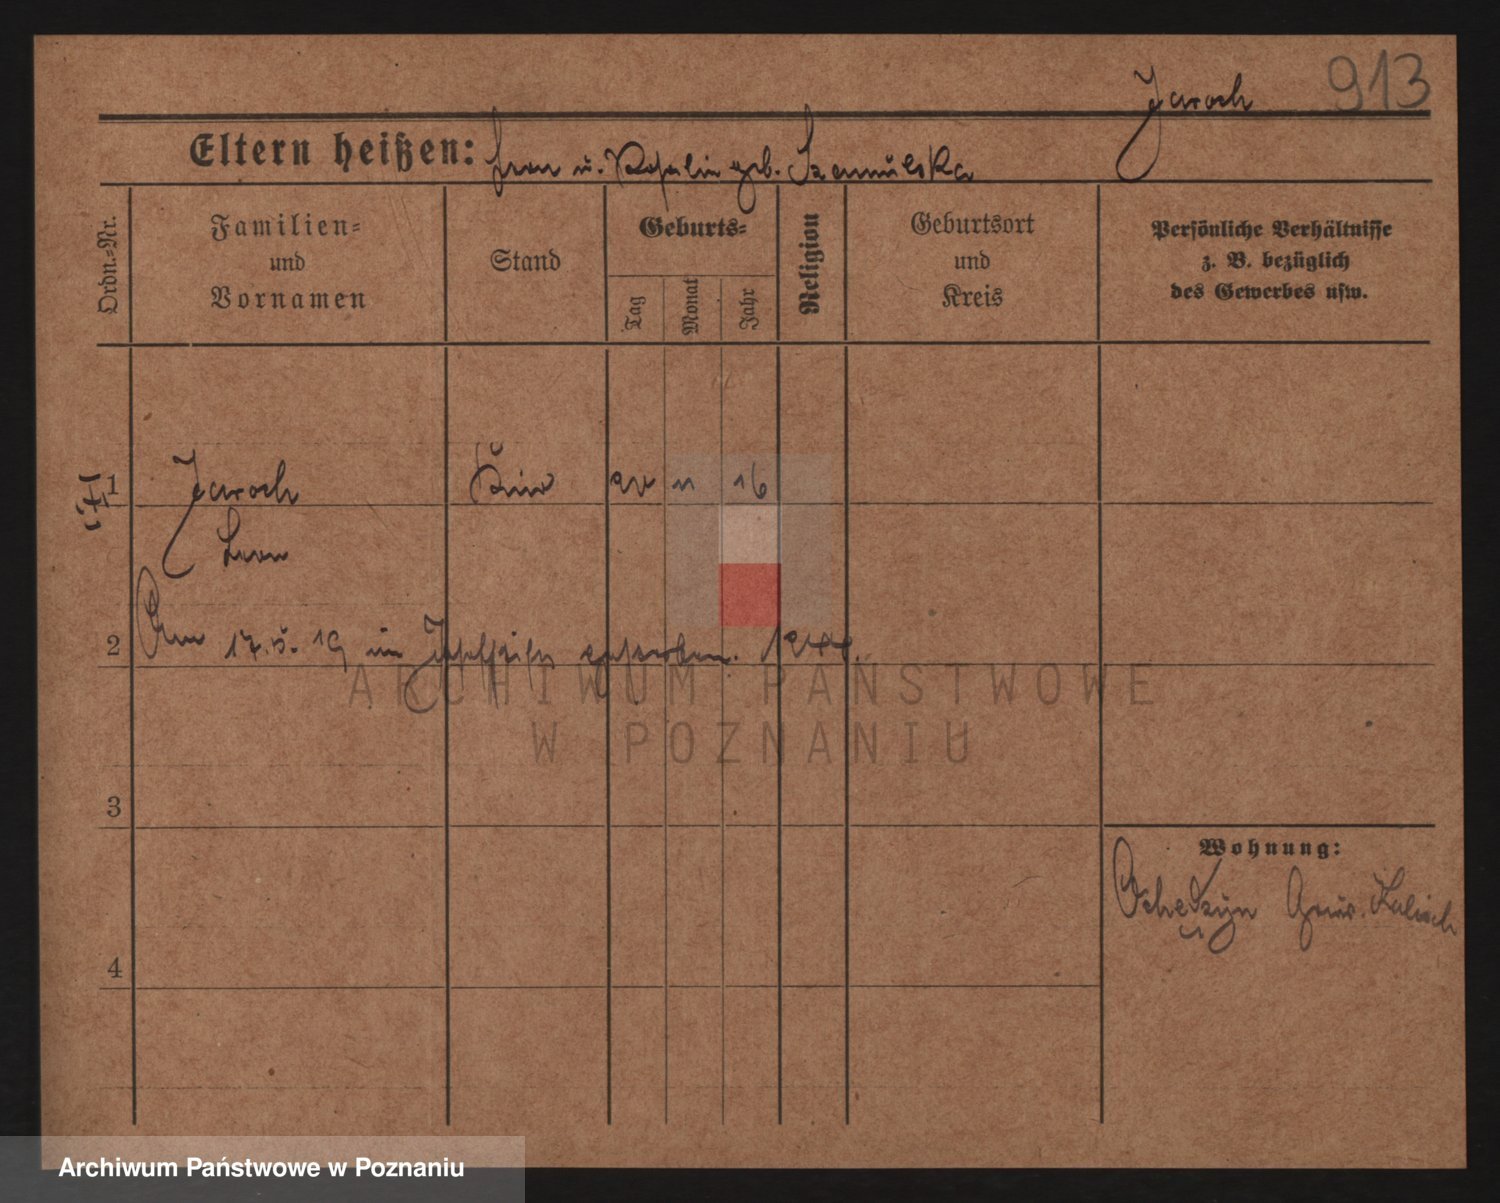 913
Jaroch
Eltern heißen: Leon u. Rosalie geb. Szamulska
Ordn.-Nr.
Familien-
und
Vornamen
Stand
Geburts-
Tag
Monat
Jahr
Religion
Geburtsort
und
Kreis
Persönliche Verhältnisse
z. B. bezüglich
des Gewerbes usw.
1 Jaroch Kind 20 11 16
Leon
2 Am 17.5.19 im gestorben.
3
4
Wohnung:
Gouv. Kalisch
ARCHIWUM PAŃSTWOWE
W POZNANIU
Archiwum Państwowe w Poznaniu